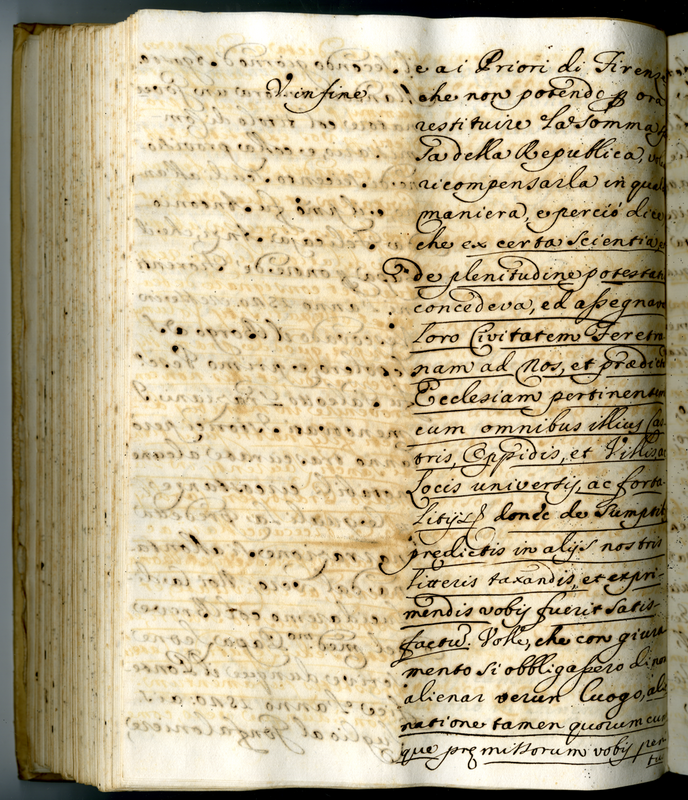 e a i Priori di Firenze
V. in fine
che non potendo p ora
restituire la Somma
sa della Republica,
ricompensarla in qual
maniera, e perciò dice
che ex certa scientia,
de plenitudine potestati
concedeva, ed assegnava
loro Civitatem Feretra
nam ad Nos, et prædict
Ecclesiam pertinentem
cum omnibus illius Cas
tris, Oppidis, et Villis, ac
Locis universis, ac forta
litijs donec de Sumptib
predictis in alijs nostris
litteris taxandis, et expri-
mendis vobis fuerit satis-
factu. Volle, che con giura
mento si obbligassero di non
alienar verun luogo, alie
natione tamen quorumcun
que premissorum vobis per